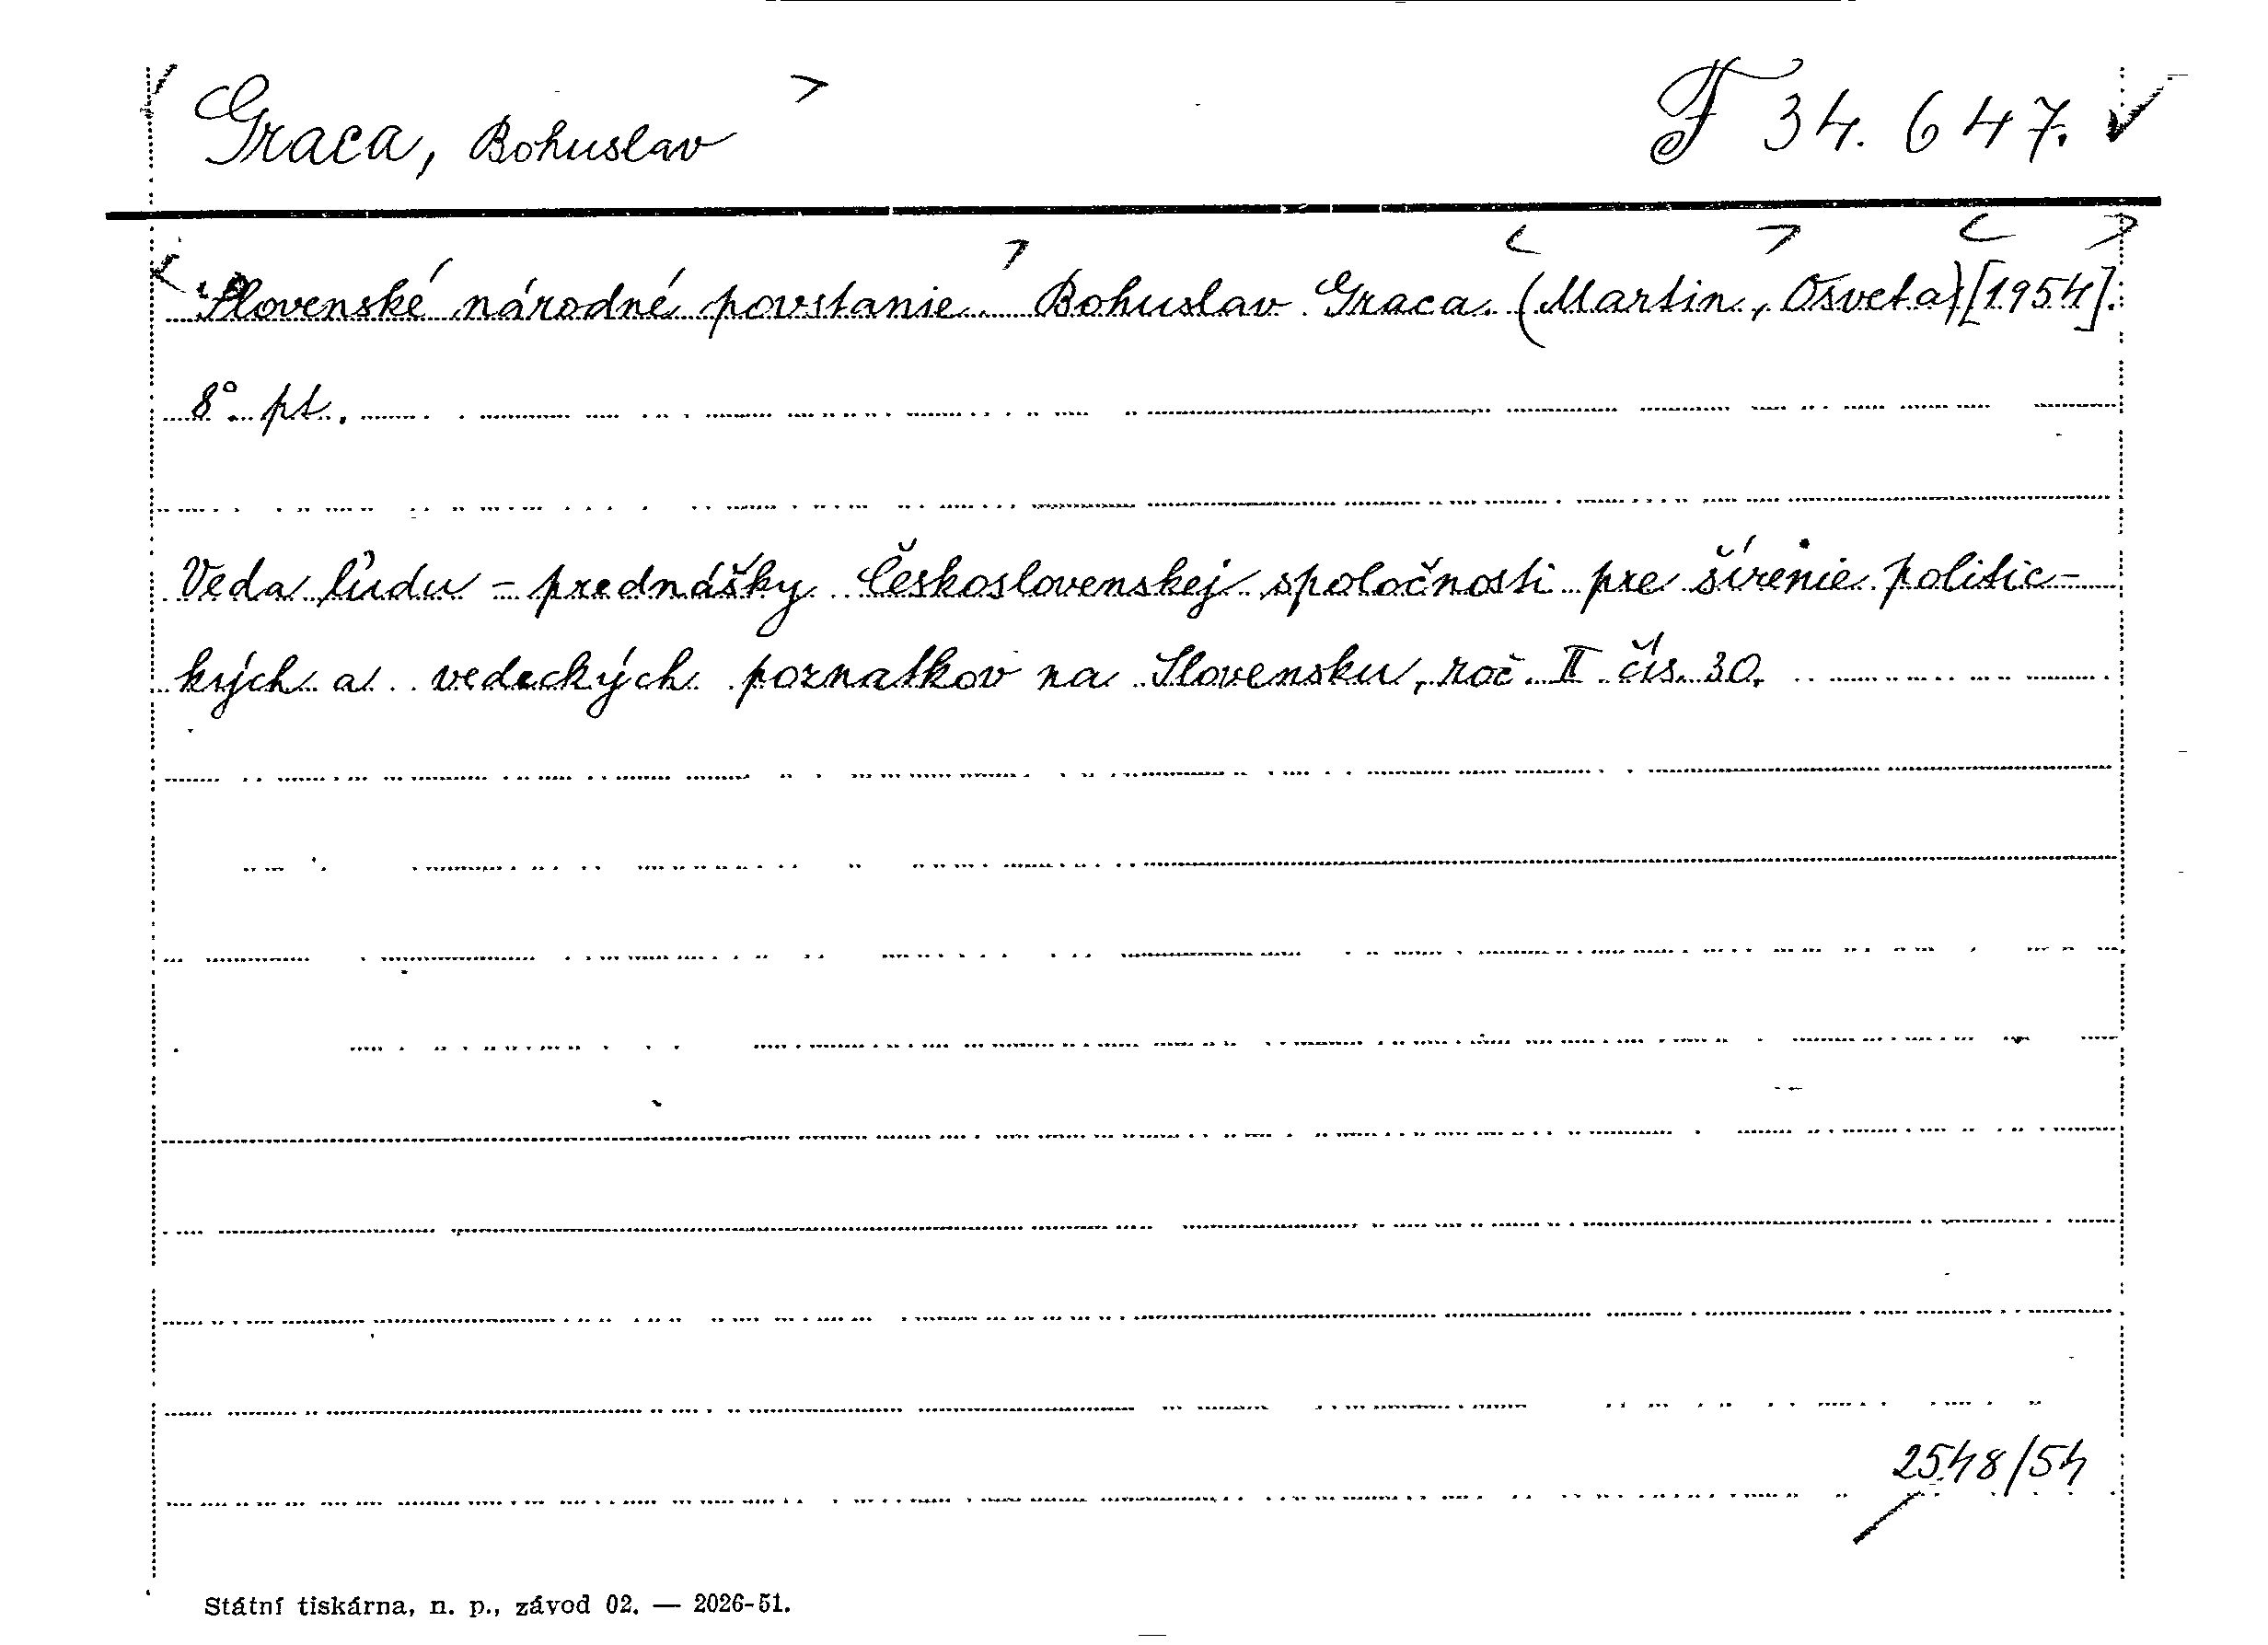 Graca, Bohuslav F 34.647.
Slovenské národné povstanie. Bohuslav Graca. (Martin, Osveta) [1954].
8° pt.
Veda ľudu - prednášky Československej spoločnosti pre šírenie politic-
kých a vedeckých poznatkov na Slovensku, roč. II čís. 30.
2548/54
Státní tiskárna, n. p., závod 02. — 2026-51.